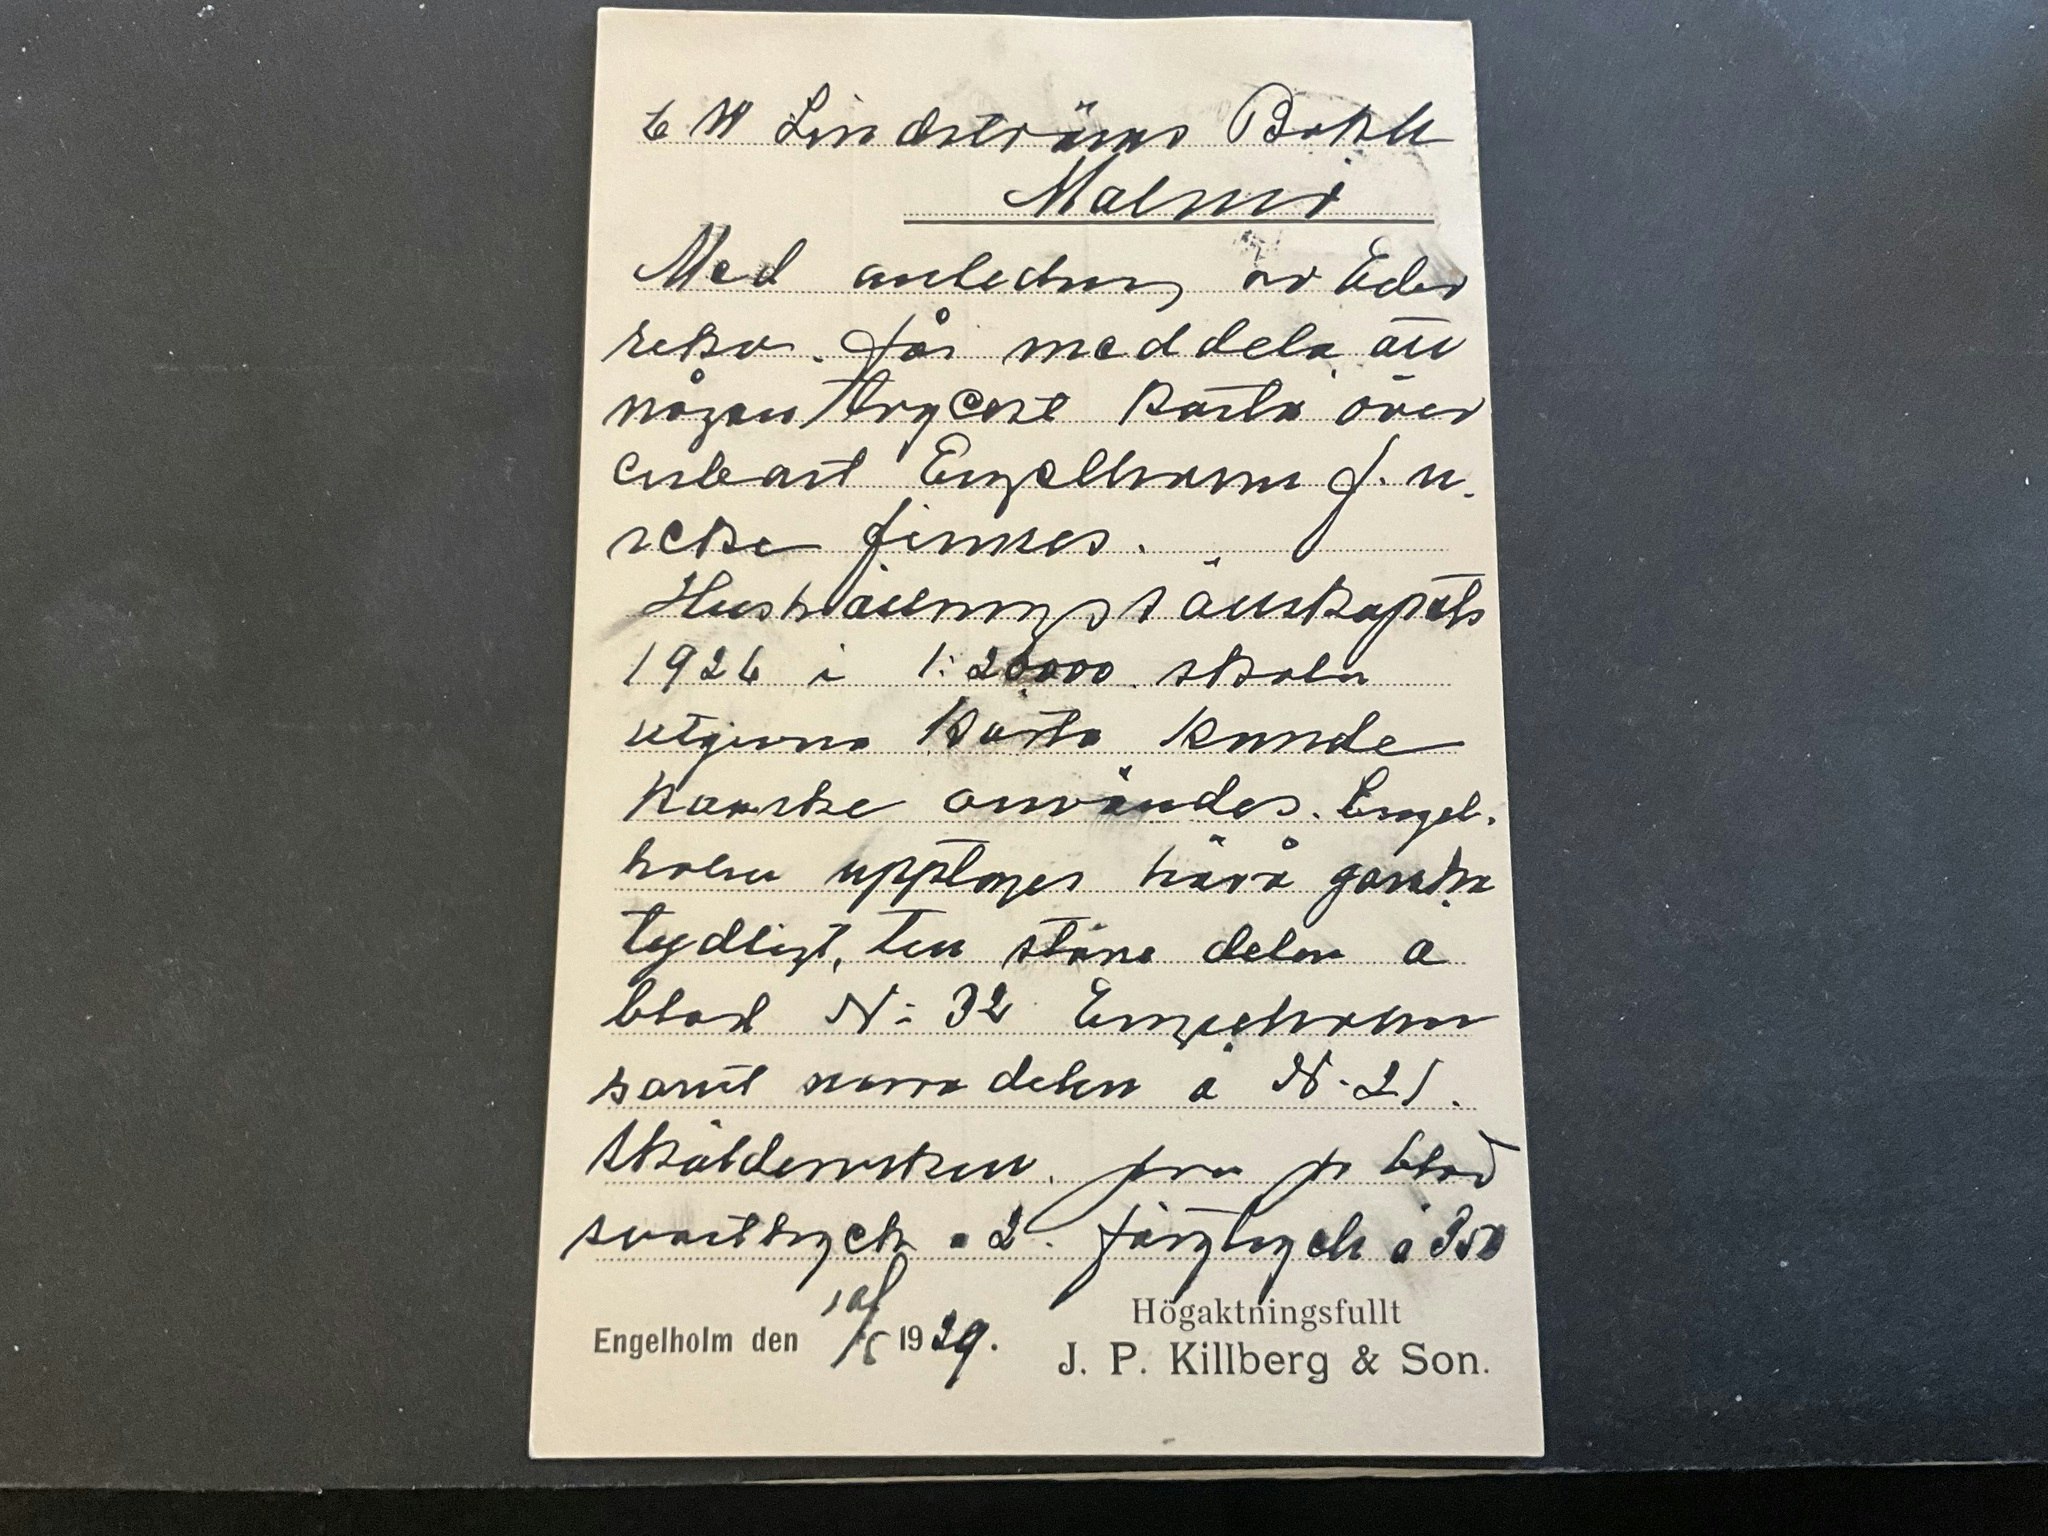 C W Lindströms Bokh
Malmö
Med anledning av Eder
rekv. får meddela att
någon tryckt karta över
enbart Engelholm f. n.
icke finnes.
Hushållningssällskapets
1926 i 1:20000 skala
utgivna karta kunde
kanske användas. Engel-
holm upptages härå ganska
tydligt, ten större delen å
blad N: 32 Engelholm
samt norra delen å N. 21.
Skälderviken. pr blad
svarttryck à 2. färgtryck à 350
Engelholm den 10/5 1929.
Högaktningsfullt
J. P. Killberg & Son.